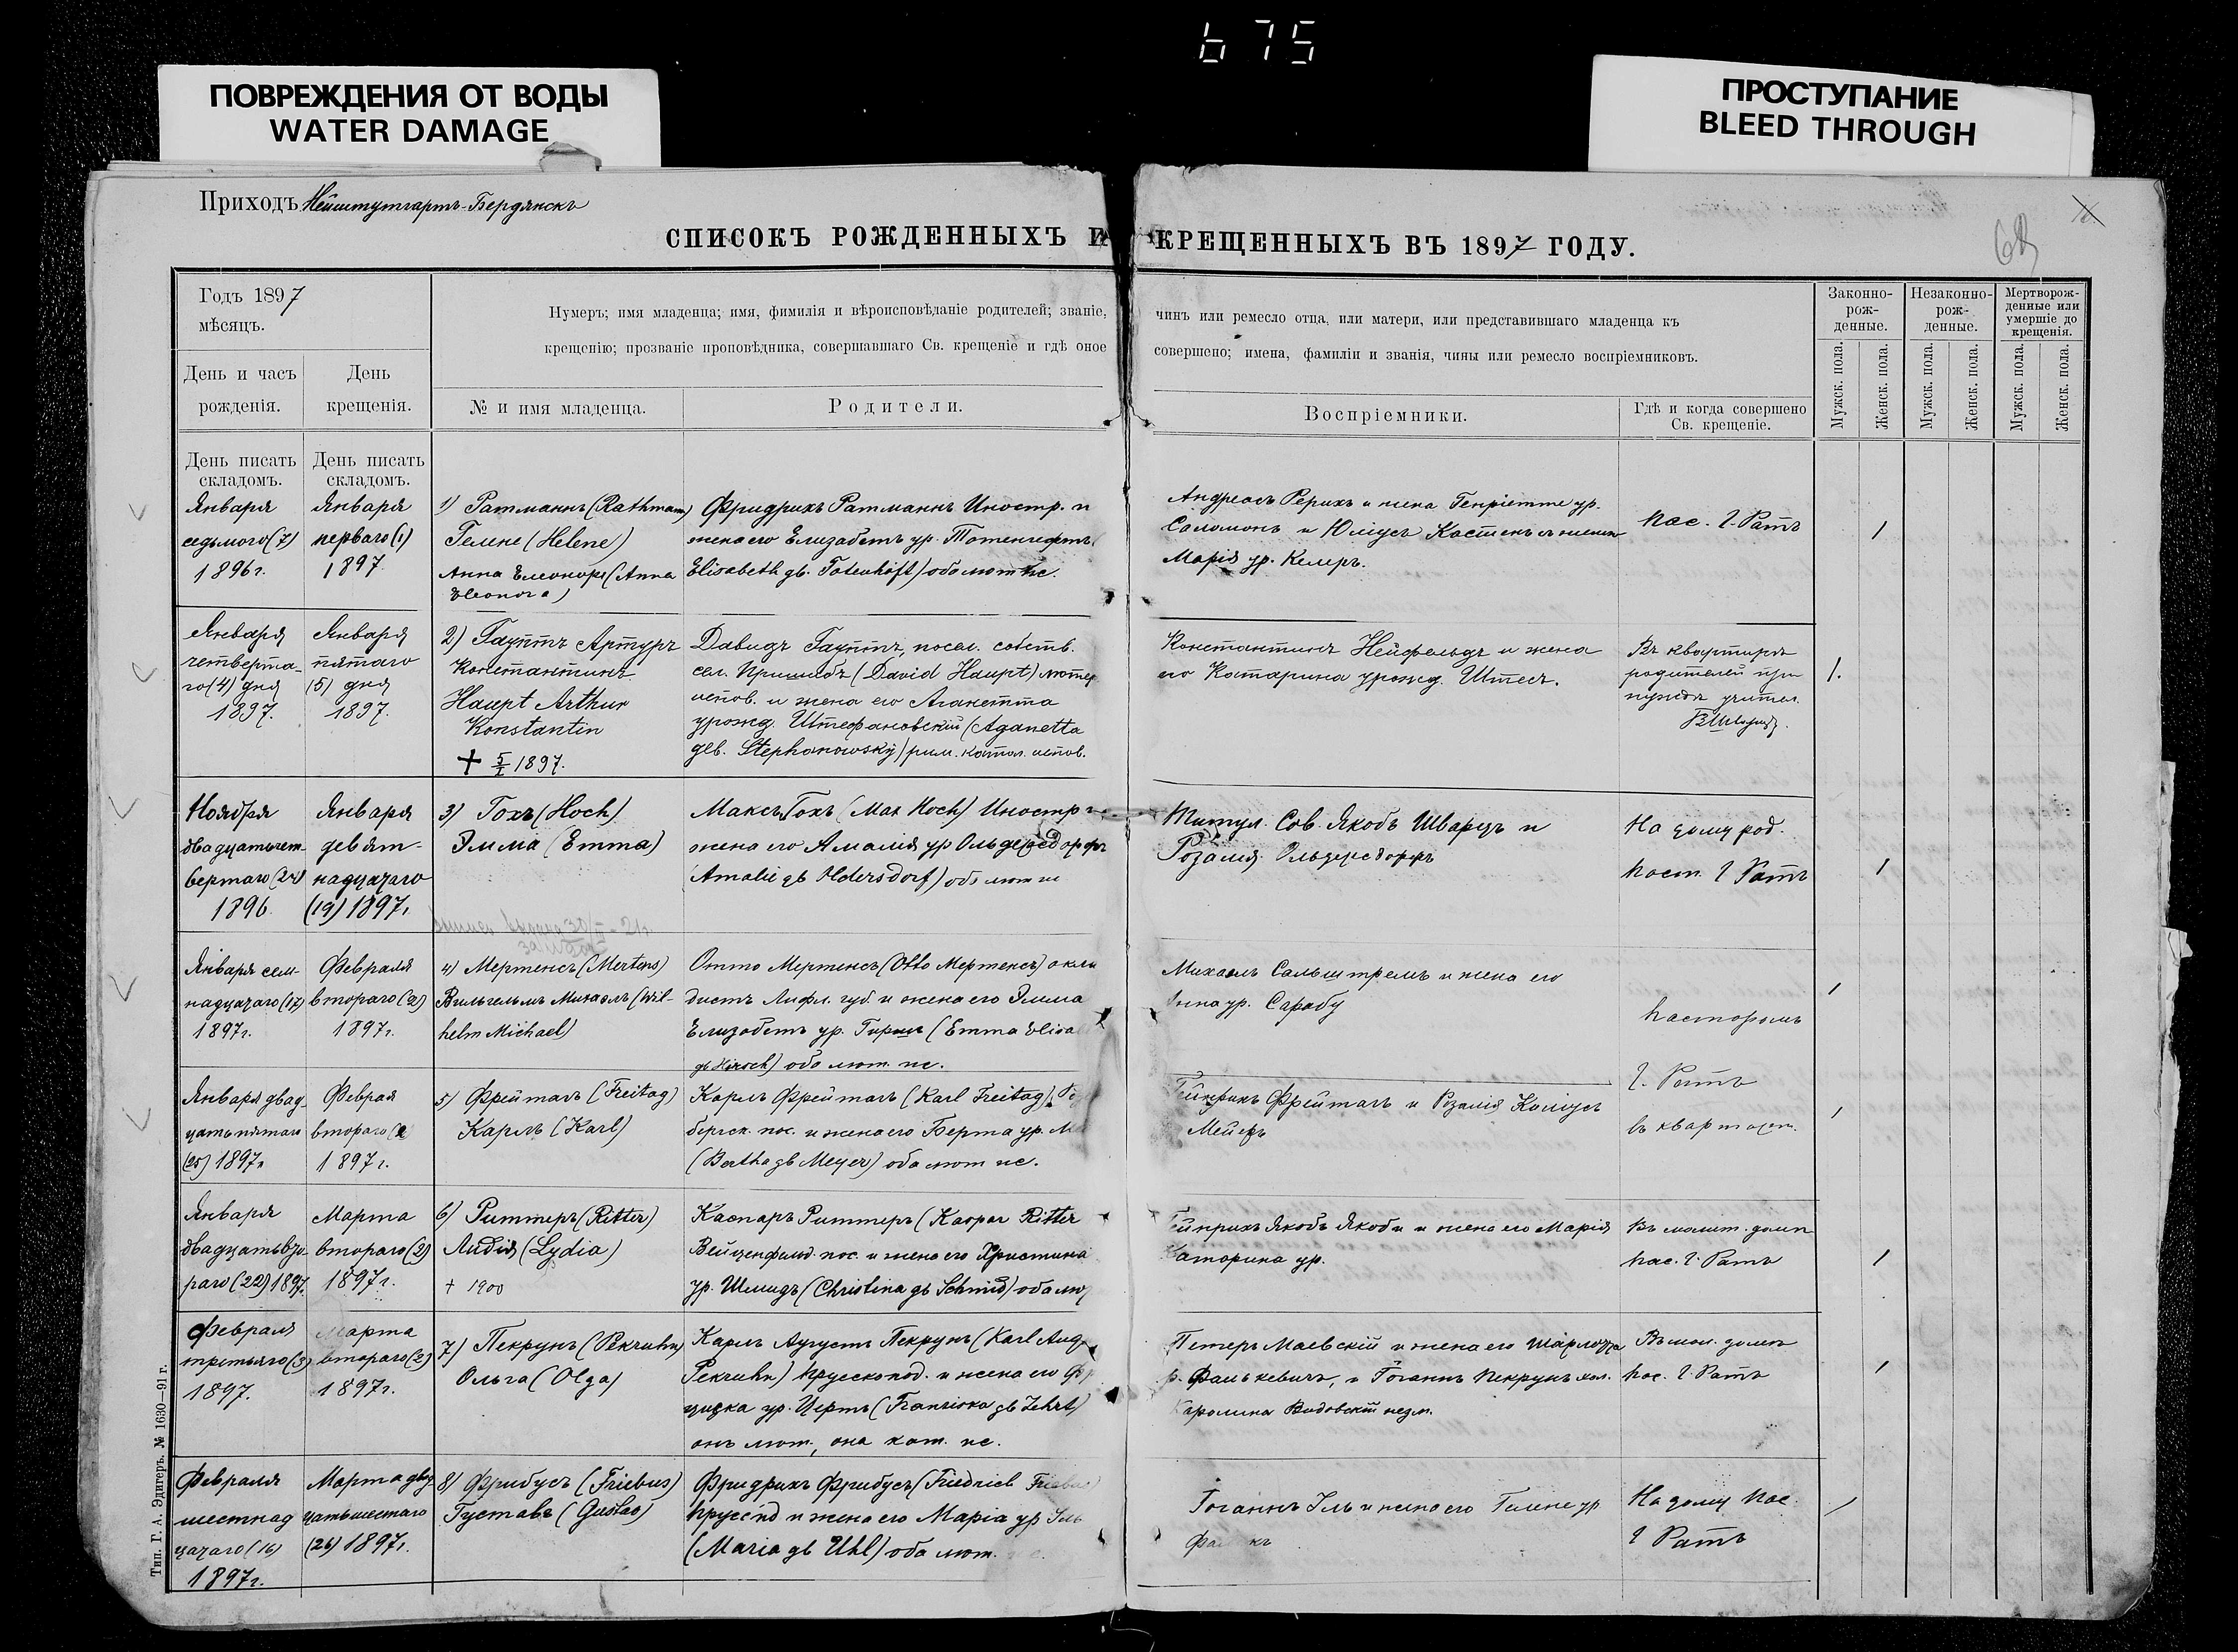 675
ПОВРЕЖДЕНИЯ ОТ ВОДЫ
WATER DAMAGE
ПРОСТУПАНИЕ
BLEED THROUGH
Приходъ Нейштутгартъ-Бердянскъ
СПИСОКЪ РОЖДЕННЫХЪ И КРЕЩЕННЫХЪ ВЪ 1897 ГОДУ.
Годъ 1897
мѣсяцъ.
День и часъ
рожденія.
День
крещенія.
Нумеръ; имя младенца; имя, фимилія и вѣроисповѣданіе родителей; званіе, чинъ или ремесло отца, или матери, или представившаго младенца къ
крещенію; прозваніе проповѣдника, совершавшаго Св. крещеніе и гдѣ оное совершено; имена, фамиліи и званія, чины или ремесло воспріемниковъ.
№ и имя младенца.
Родители.
Воспріемники.
Гдѣ и когда совершено
Св. крещеніе.
Законно-
рож-
денные.
Незаконно-
рож-
денные.
Мертворож-
денные или
умершіе до
крещенія.
Мужск. пола.
Женск. пола.
Мужск. пола.
Женск. пола.
Мужск. пола.
Женск. пола.
День писать
складомъ.
День писать
складомъ.
Января
седьмого (7)
1896 г.
Января
перваго (1)
1897
1) Ратманнъ (Rathmann)
Гелене (Helene)
Анна Елеоноре (Anna
Eleonora)
Фридрихъ Ратманнъ Иностр. и
жена его Елизабетъ ур.
Elisabeth дв. Totenhöft) оба лют. ис.
Андреасъ Рерихъ и жена Генріетте ур.
Саломонъ и Юліусъ
Марія ур. Келеръ.
Пас. Г. Ратъ
1
Января
четверта-
го (4) дня
1897.
Января
пятаго
(5) дня
1897.
2) Гауптъ Артуръ
Константинъ
Haupt Arthur
Konstantin
+ 5/I 1897.
Давидъ Гауптъ, посел. собств.
сел. Пришибъ (David Haupt) лютер
испов. и жена его Аганетта
урожд. Штефановскій (Aganetta
дев. Stephanowsky) рим. катол. испов.
Константинъ Нейфельдъ и жена
его Катарина урожд. Штесъ.
Въ квартирѣ
родителей при
нуждѣ учител.
1.
Ноября
двадцатьчет-
вертаго (24)
1896
Января
девят-
надцатаго
(19) 1897 г.
3) Гохъ (Hoch)
Эмма (Emma)
Максъ Гохъ (Max Hoch) Иностр и
жена его Амалія ур Ольдерсдорфъ
(Amalie дв Oldersdorf) оба лют ис
Титул. Сов. Якобъ Шварцъ и
Розалія Ольдерсдорфъ
На дому род.
Паст. Г Ратъ
1
Января сем-
надцатаго (17)
1897 г.
Февраля
второго (2)
1897 г.
4) Мертенсъ (Mertens)
Вильгельмъ Михаэль (Wil-
helm Michael)
Отто Мертенсъ (Otto Мертенсъ)
Лифл. губ. и жена его Эмма
Елизабетъ ур. Гиршъ (Emma Elisa
дв Hirsch) оба лют. ис.
Михаэль Сальштремъ и жена его
Анна ур. Сарабу
Пасторомъ
Г. Ратъ
1
Января двад-
цать пятаго
(25) 1897 г
Феврал
второго (2
1897 г.
5) Фрейтагъ (Freitag)
Карлъ (Karl)
Карлъ Фрейтагъ (Karl Freitag)
бергск. пос. и жена его Берта ур. М
(Bertha дв Meyer) оба лют ис.
Гейнрихъ Фрейтагъ и Розалія
Мейеръ
въ квар
1
Января
двадцатьвто-
раго (22) 1897.
Марта
второго (2)
1897 г.
6) Риттеръ (Ritter)
Лидія (Lydia)
+ 1900
Каспаръ Риттеръ (Kaspar Ritter
Вейценфельд. пос. и жена его Христина
ур. Шмидъ (Christina дв Schmid) оба лю
Гейнрихъ Якобъ Якоби и жена его Марія
Катарина ур.
Въ молит. домѣ
пас. Г. Ратъ
1
Февраля
третьяго (3)
1897.
Марта
второго (2)
1897 г.
7) Пекрунъ (Pekruhn)
Ольга (Olga)
Карлъ Аугустъ Пекрунъ (Karl Aug
Pekruhn) Прусскопод. и жена его Фр
циска ур. Цертъ (Franziska дв Zehrt)
онъ лют., она кат. ис.
Петеръ Маевскій и жена его Шарлотта
р. Фалькевичъ, и Іоганнъ Пекрунъ хол.
Каролина Видовскій незм.
Въ мол. домѣ
пас. Г. Ратъ
1
Февраля
шестнад
цатаго (16)
1897 г.
Марта двад-
цатьшестаго
(26) 1897 г.
8) Фрибусъ (Friebus)
Густавъ (Gustav)
Фридрихъ Фрибусъ (Friedrich Friebus)
Прус. пд и жена его Марія ур Уль
(Maria дв Uhl) оба лют.
Іоганнъ Уль и жена его Гелене ур
На дому Пас.
Г Ратъ
1
Тип. Г. А. Эдигеръ. № 1630—91 г.